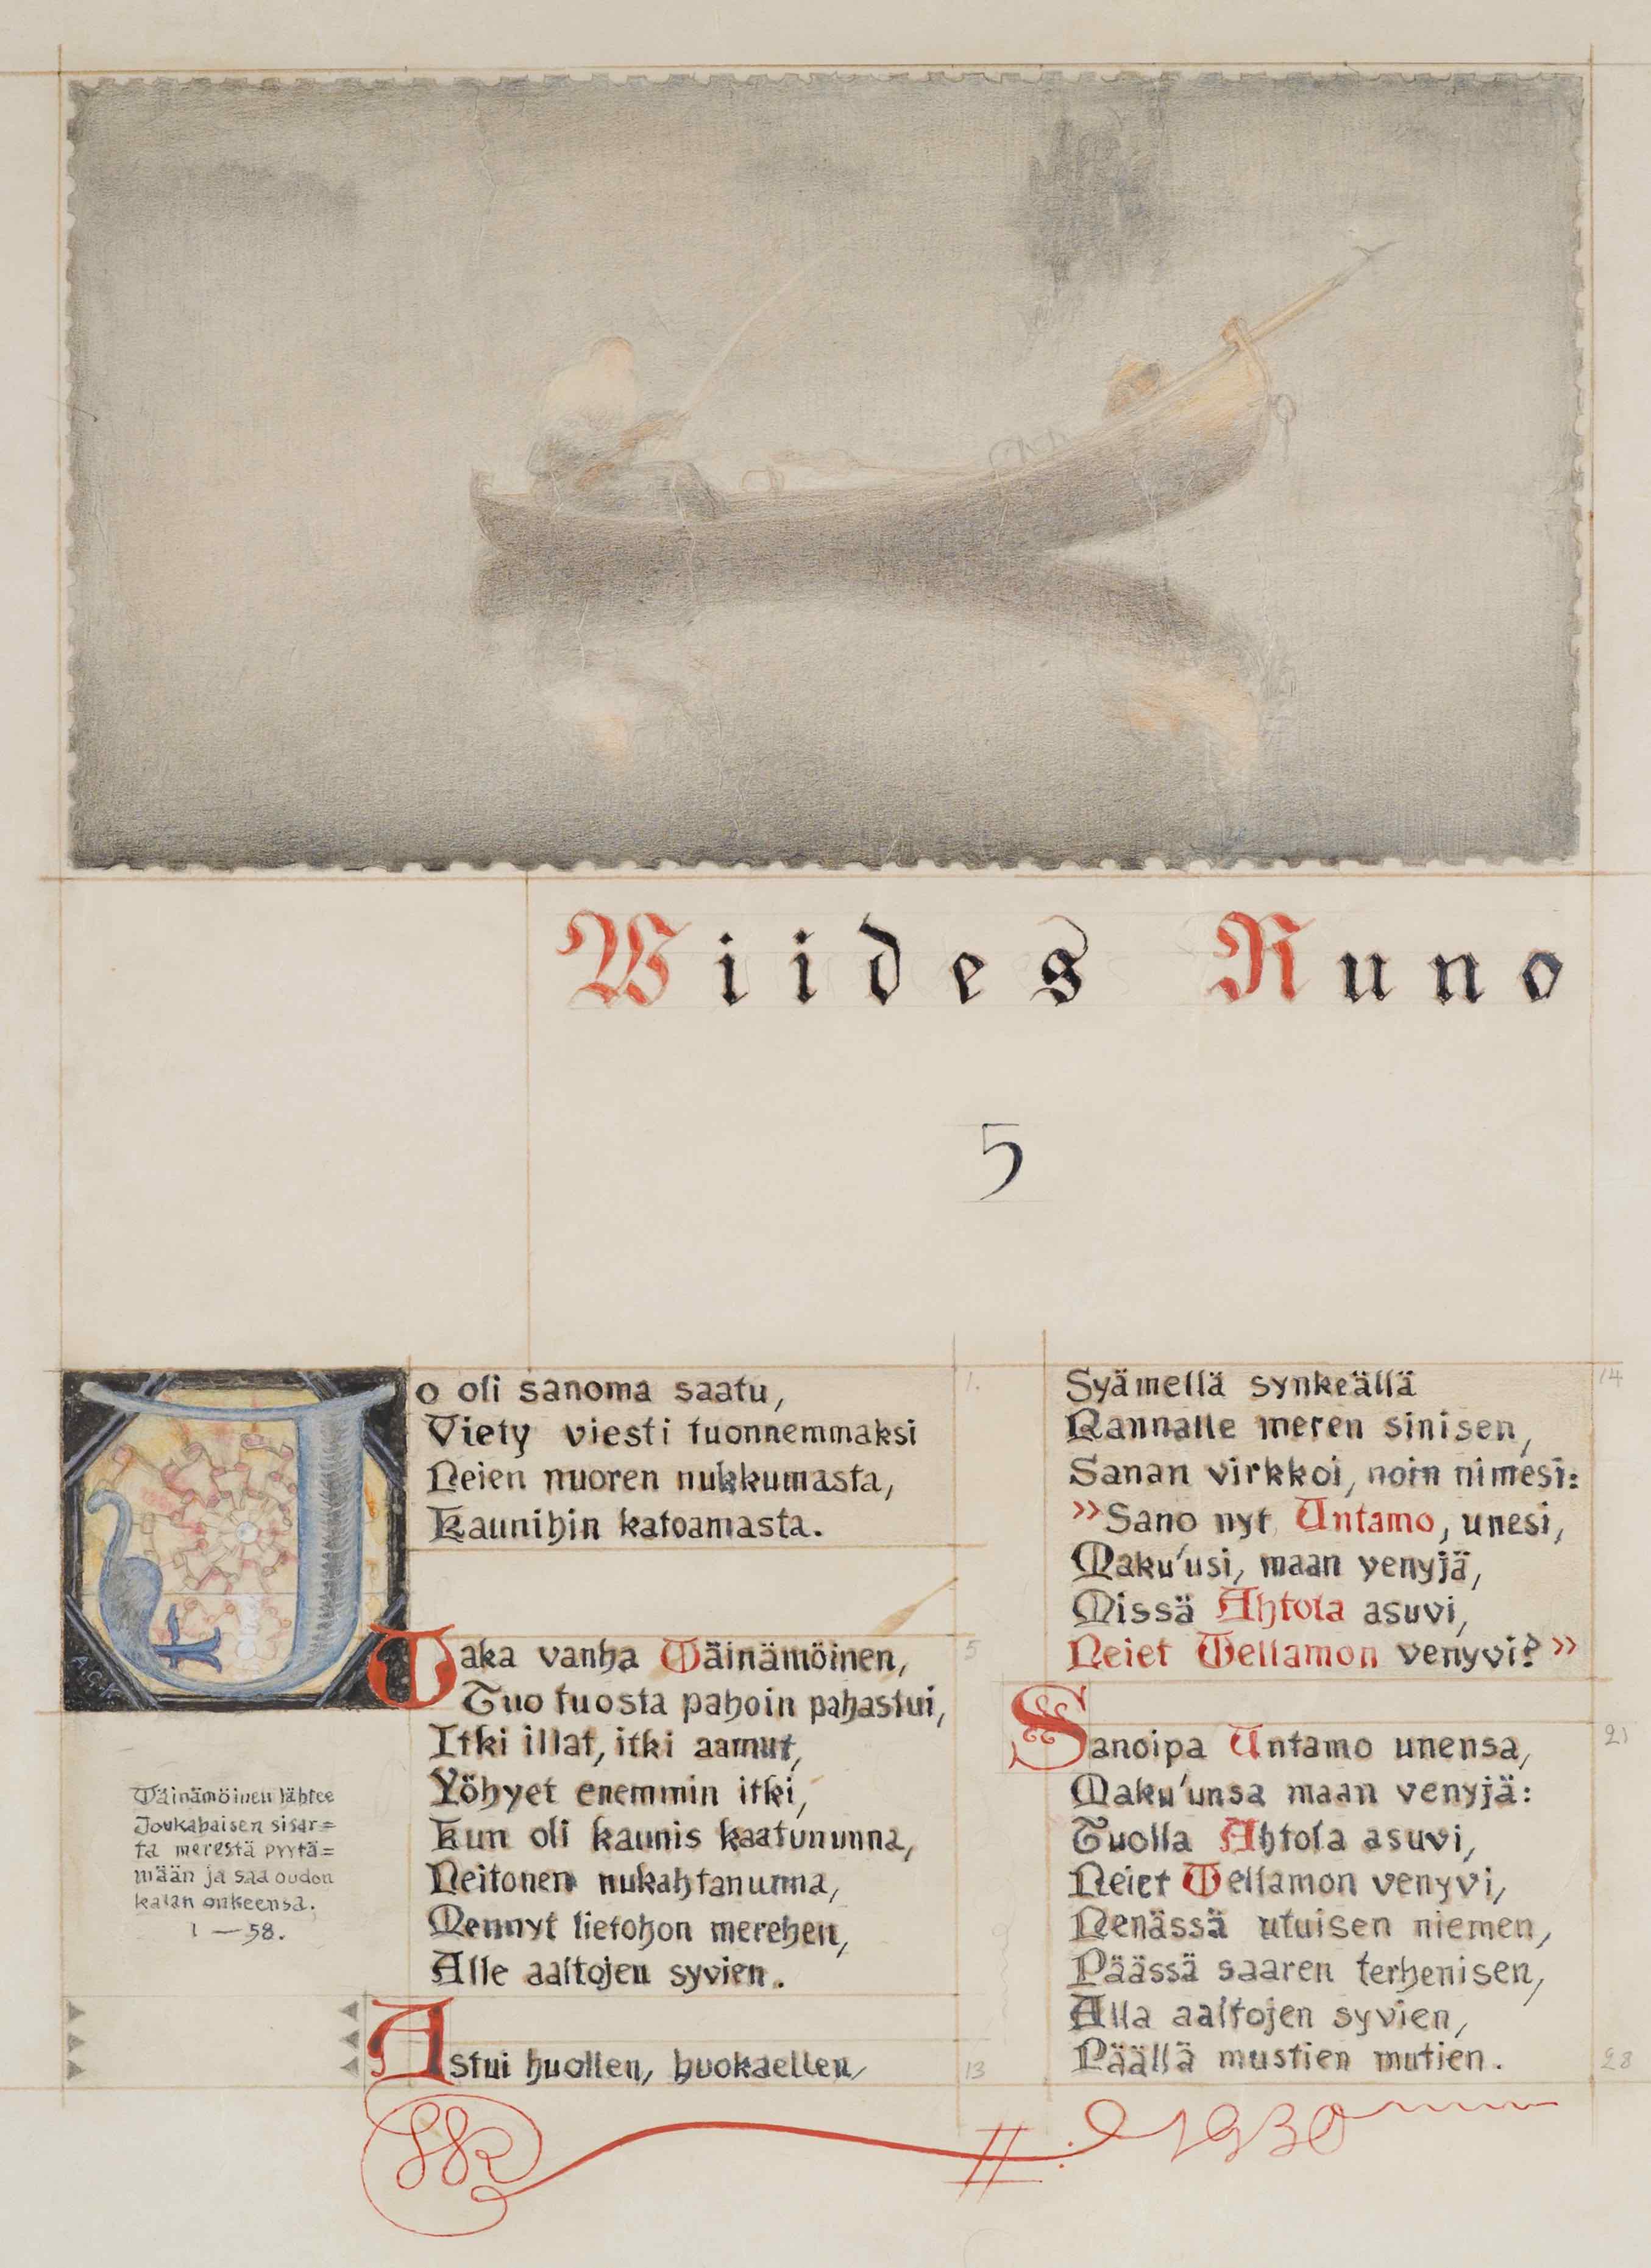 Wiides Runo
5
Jo oli sanoma saatu,
Viety viesti tuonnemmaksi
Neien nuoren nukkumasta,
Kaunihin katoamasta.
1.
Waka vanha Wäinämöinen,
Tuo tuosta pahoin pahastui,
Itki illat, itki aamut,
Yöhyet enemmin itki,
Kun oli kaunis kaatununna,
Neitonen nukahtanunna,
Mennyt lietohon merehen,
Alle aaltojen syvien.
5
Astui huollen, huokaellen,
13
A.G.K.
Wäinämöinen lähtee
Joukahaisen sisar=
ta merestä pyytä=
mään ja saa oudon
kalan onkeensa.
1 — 58.
Syämellä synkeällä
14
Rannalle meren sinisen,
Sanan virkkoi, noin nimesi:
»Sano nyt Untamo, unesi,
Maku'usi, maan venyjä,
Missä Ahtola asuvi,
Neiet Wellamon venyvi?»
Sanoipa Untamo unensa,
21
Maku'unsa maan venyjä:
Tuolla Ahtola asuvi,
Neiet Wellamon venyvi,
Nenässä utuisen niemen,
Päässä saaren terhenisen,
Alla aaltojen syvien,
Päällä mustien mutien.
28
1930